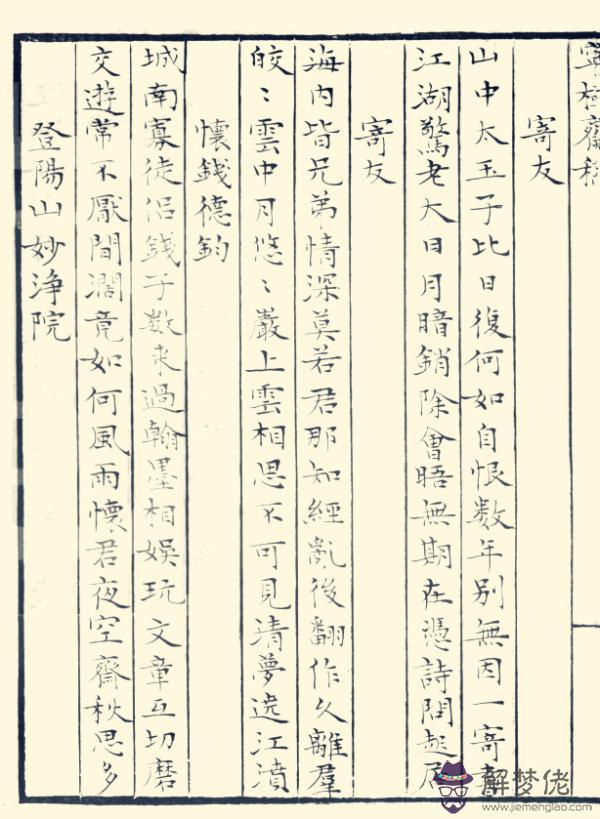 寧極齋稿
寄友
山中太玉子比日復何如自恨数年别無因一寄書
江湖驚老大日月暗銷除會晤無期在憑詩問起居
寄友
海内皆兄弟情深莫若君那知經亂後翻作久離羣
皎〻雲中月悠〻巖上雲相思不可見清夢遶江濆
懷錢德鈞
城南寡徒侣錢子数来過翰墨相娱玩文章互切磨
交遊常不厭間濶竟如何風雨懷君夜空齋秋思多
登陽山妙浄院
解梦佬
www.jiemenglao.com